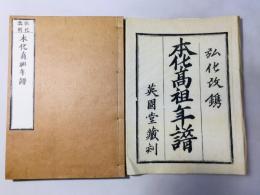 弘化
本化高祖年譜
弘化改鐫
本化高祖年譜
英園堂藏刻